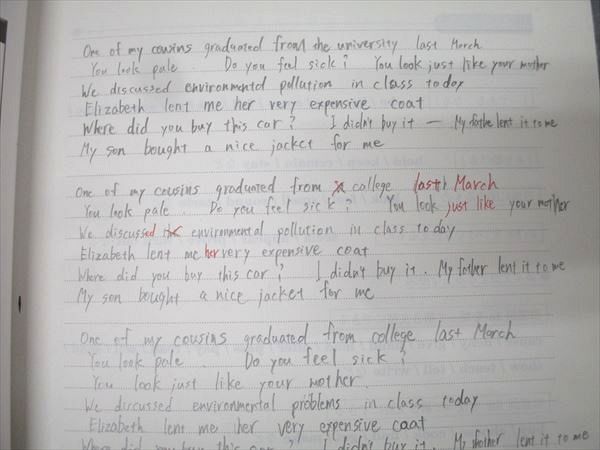 One of my cousins graduated from the university last March
You look pale. Do you feel sick? You look just like your mother
We discussed environmental pollution in class today
Elizabeth lent me her very expensive coat
Where did you buy this car? I didn't buy it — My fathe lent it to me
My son bought a nice jacket for me
One of my cousins graduated from college last March
You look pale. Do you feel sick? You look just like your mother
We discussed environmental pollution in class today
Elizabeth lent me her very expensive coat
Where did you buy this car? I didn't buy it. My father lent it to me
My son bought a nice jacket for me
One of my cousins graduated from college last March
You look pale. Do you feel sick?
You look just like your mother.
We discussed environmental problems in class today
Elizabeth lent me her very expensive coat
Where did you buy this car? I didn't buy it. My mother lent it to me